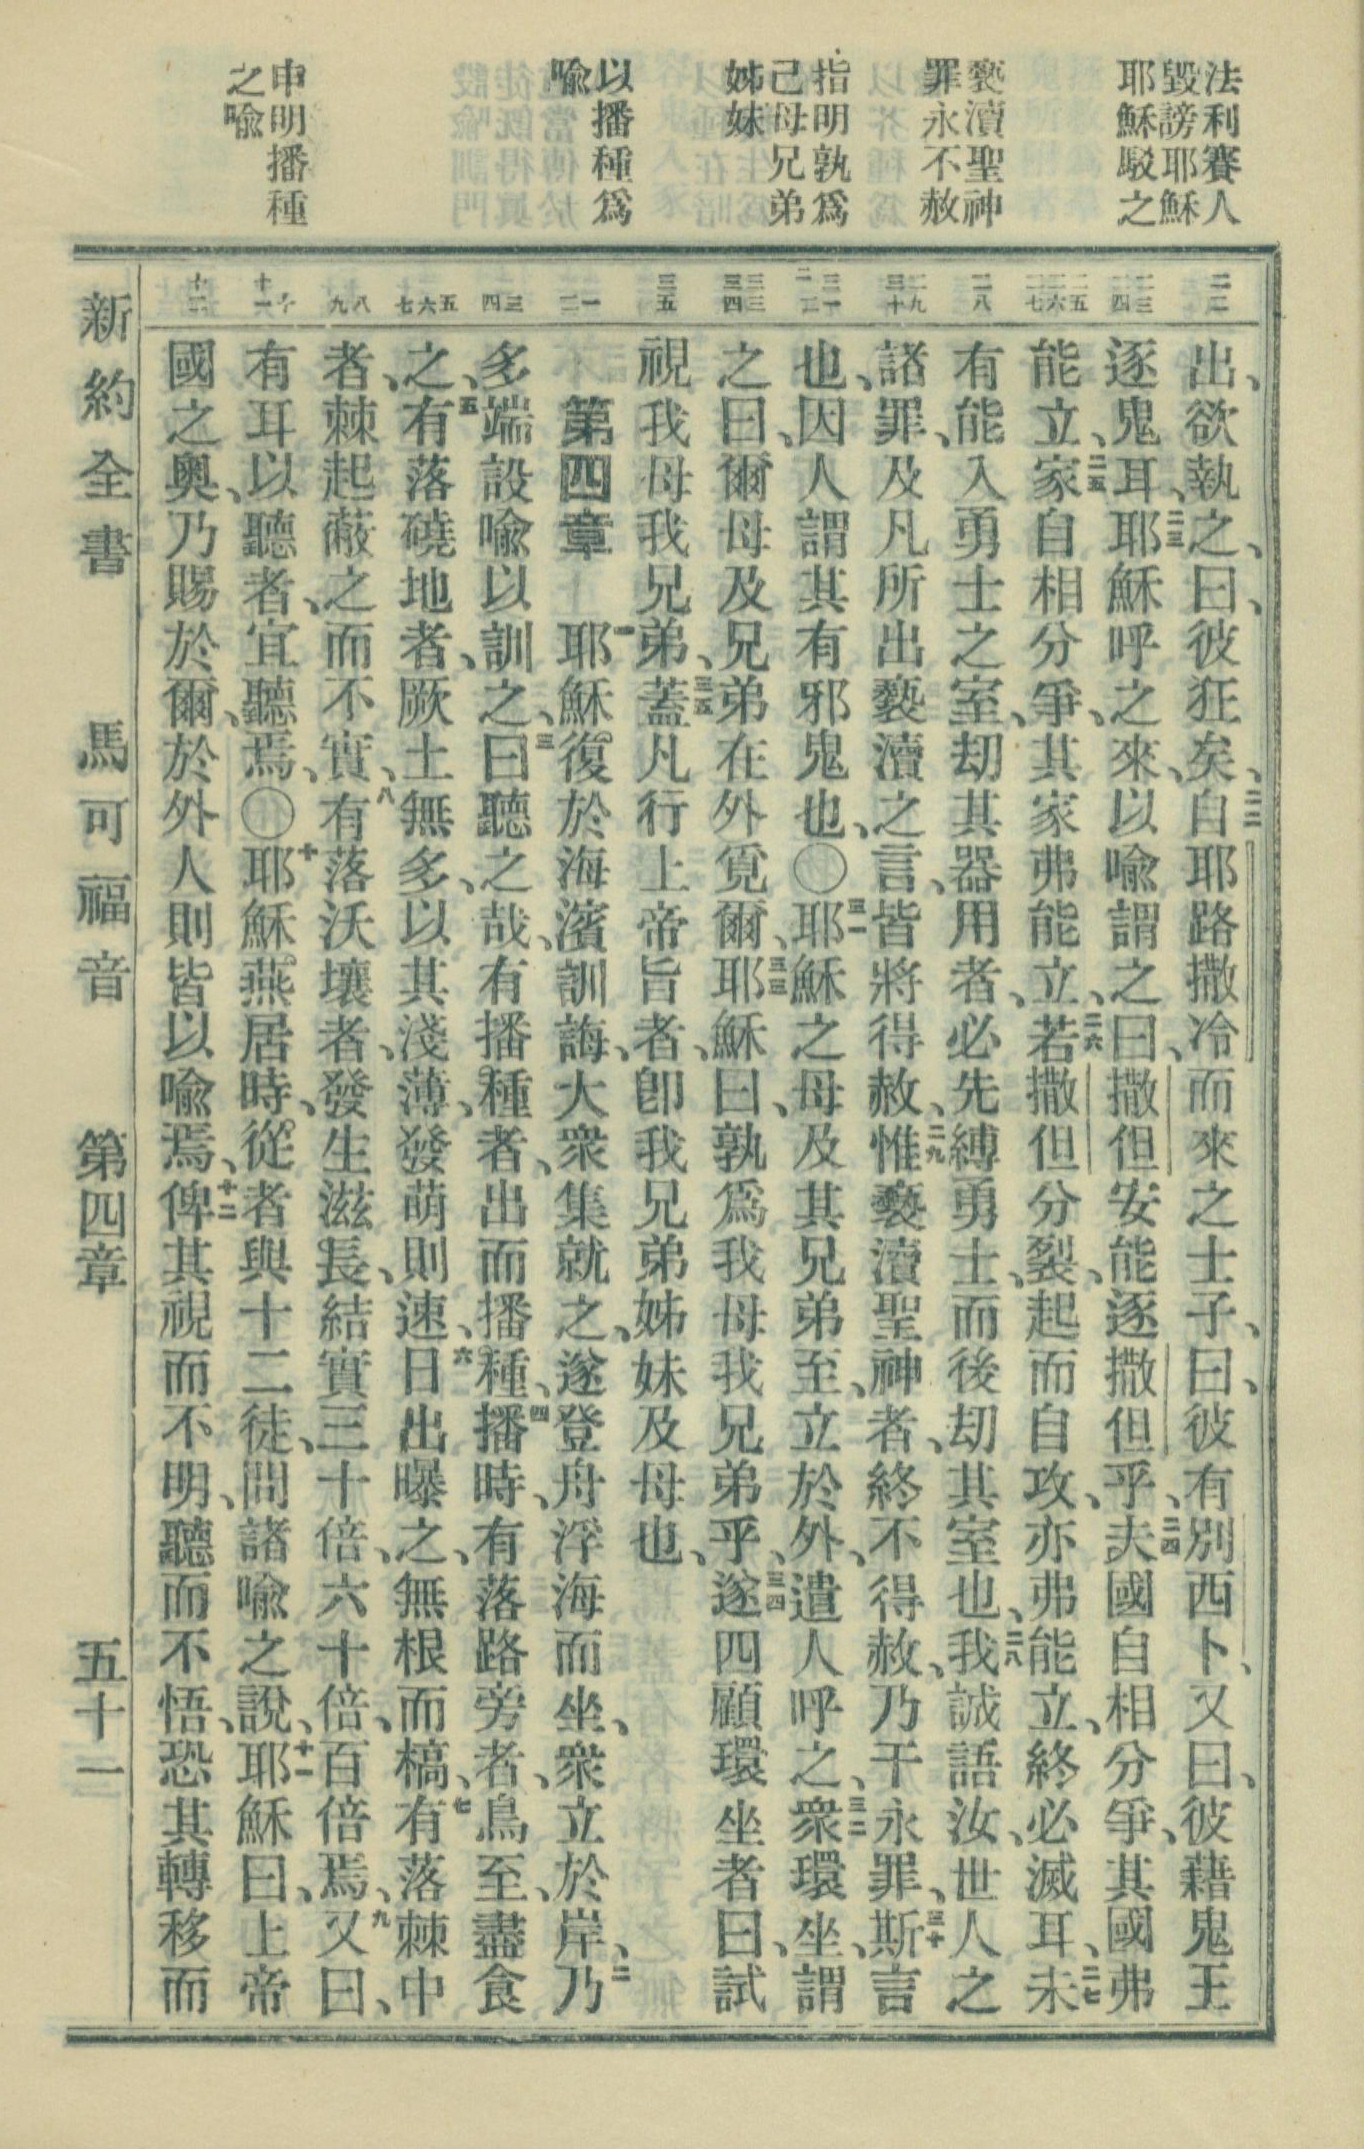 法利賽人
毀謗耶穌
耶穌駁之
褻瀆聖神
罪永不赦
指明孰爲
己母兄弟
姊妹
以播種爲
喩
申明播種
之喩
二二
二三 二四
二五 二六 二七
二八
二九 三十
三一 三二
三三 三四
三五
一 二
三 四
五 六 七
八 九
十 十一
十二
出、欲執之、曰、彼狂矣、二二自耶路撒冷而來之士子、曰、彼有別西卜、又曰、彼藉鬼王
逐鬼耳、二三耶穌呼之來、以喩謂之曰、撒但安能逐撒但乎、二四夫國自相分爭、其國弗
能立、二五家自相分爭、其家弗能立、二六若撒但分裂、起而自攻、亦弗能立、終必滅耳、二七未
有能入勇士之室、刧其器用者、必先縛勇士、而後刧其室也、二八我誠語汝、世人之
諸罪、及凡所出褻瀆之言、皆將得赦、二九惟褻瀆聖神者、終不得赦、乃干永罪、三十斯言
也、因人謂其有邪鬼也、〇三一耶穌之母及其兄弟至、立於外、遣人呼之、三二衆環坐、謂
之曰、爾母及兄弟在外覓爾、三三耶穌曰、孰爲我母我兄弟乎、三四遂四顧環坐者曰、試
視我母我兄弟、三五蓋凡行上帝旨者、卽我兄弟姊妹及母也、
第四章 一耶穌復於海濱訓誨、大衆集就之、遂登舟浮海而坐、衆立於岸、二乃
多端設喩以訓之、三曰聽之哉、有播種者、出而播種、四播時、有落路旁者、鳥至盡食
之、五有落磽地者、厥土無多、以其淺薄、發萌則速、六日出曝之、無根而槁、七有落棘中
者、棘起蔽之而不實、八有落沃壤者、發生滋長、結實三十倍、六十倍、百倍焉、九又曰、
有耳以聽者、宜聽焉、〇十耶穌燕居時、從者與十二徒、問諸喩之說、十一耶穌曰、上帝
國之奧、乃賜於爾、於外人則皆以喩焉、十二俾其視而不明、聽而不悟、恐其轉移而
新約全書 馬可福音 第四章 五十一